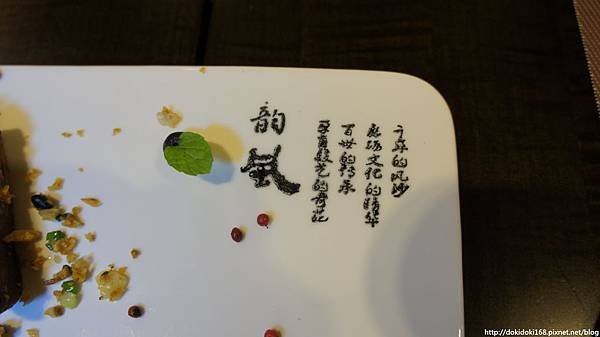 千年的风沙
磨砺文化的精华
百世的传承
孕育技艺的奇花
韵
http://dokidoki168.pixnet.net/blog